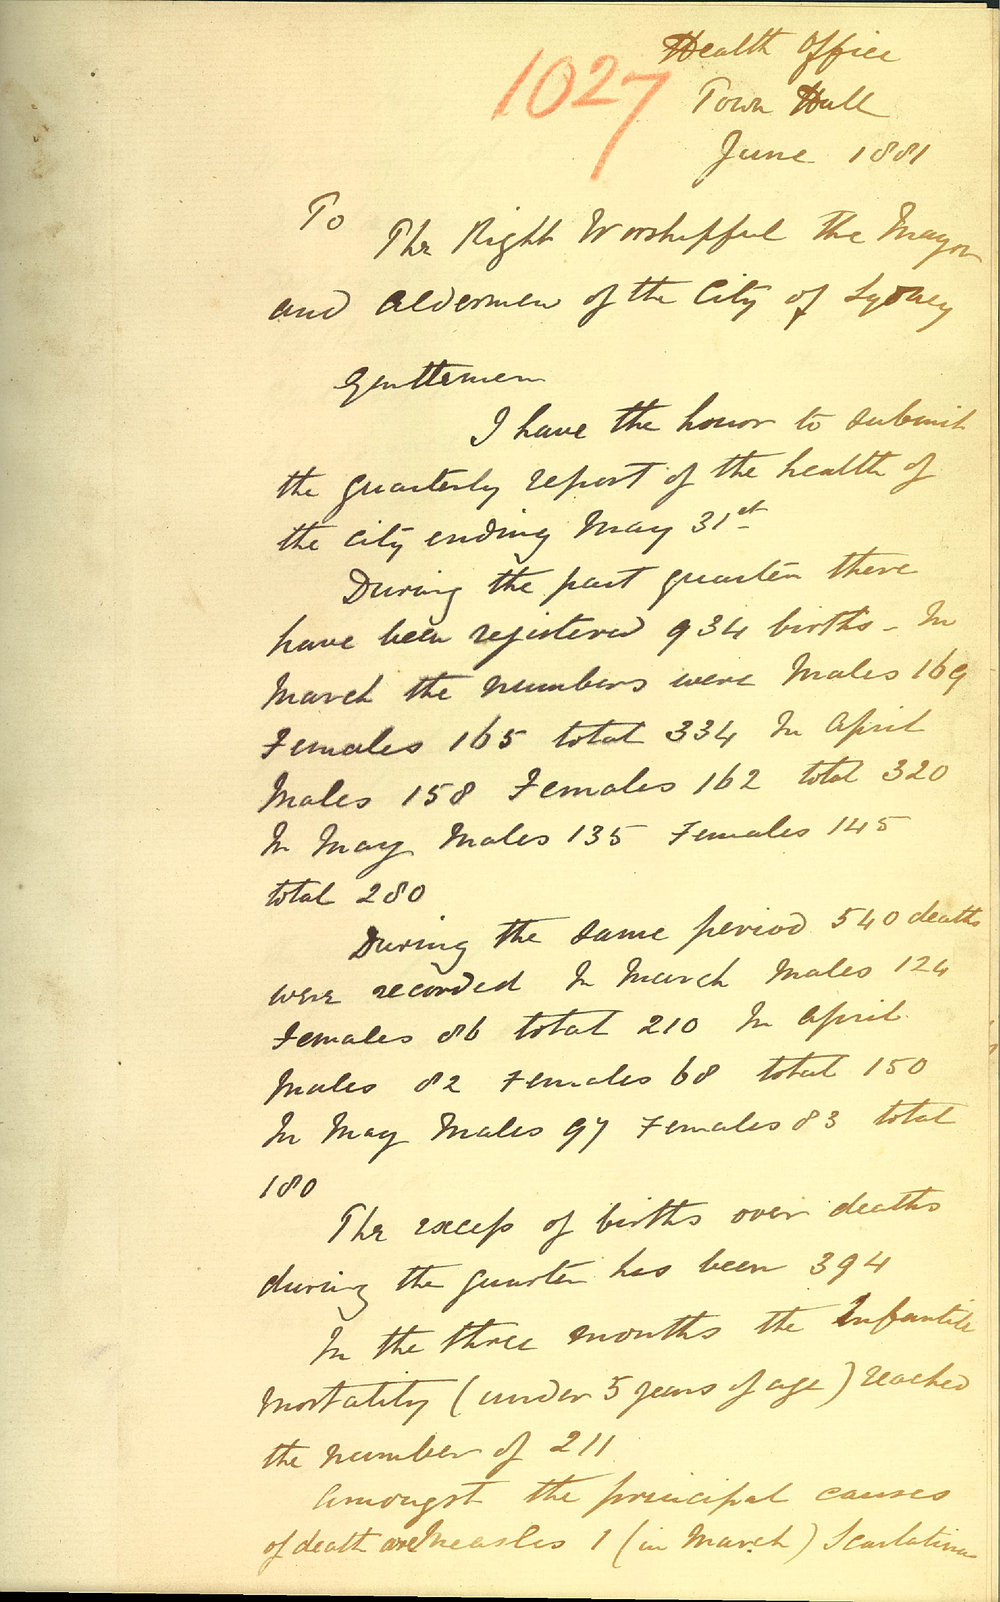 Health Office
1027
Town Hall
June 1881
To
The Right Worshipful the Mayor
and Aldermen of the City of Sydney
Gentlemen
I have the honor to submit
the quarterly report of the health of
the city ending May 31st
During the past quarter there
have been registered 934 births - In
March the numbers were Males 169
Females 165 total 334 In April
Males 158 Females 162 total 320
In May Males 135 Females 145
total 280
During the same period 540 deaths
were recorded In March Males 124
Females 86 total 210 In April
Males 82 Females 68 total 150
In May Males 97 Females 83 total
180
The excess of births over deaths
during the quarter has been 394
In the three months the Infantile
Mortality (under 5 years of age) reached
the number of 211
Amongst the principal causes
of death are Measles 1 (in March) Scarlatina